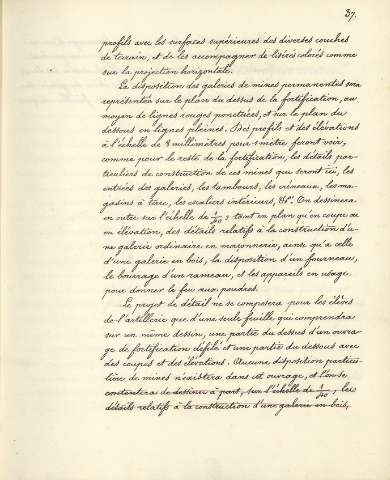 37.
profils avec les surfaces supérieures des diverses couches
de terrain, et de les accompagner de liserés colorés comme
sur la projection horizontale.
La disposition des galeries de mines permanentes sera
représentée sur le plan du dessus de la fortification, au
moyen de lignes rouges ponctuées, et sur le plan du
dessous en lignes pleines. Des profils et des élévations
à l'échelle de 8 millimètres pour 1 mètre feront voir,
comme pour le reste de la fortification, les détails par-
ticuliers de construction de ces mines qui seront vu, les
entrées des galeries, les tambours, les créneaux, les ma-
gasins à terre, les escaliers intérieurs, &c. On dessinera
en outre sur l'échelle de tant en plan qu'en coupe ou
en élévation, des détails relatifs à la construction d'u-
ne galerie ordinaire en maçonnerie, ainsi qu'à celle
d'une galerie en bois, la disposition d'un fourneau,
le bourrage d'un rameau, et les appareils en usage
pour donner le feu aux poudres.
Le projet de détail ne se composera pour les élèves
de l'artillerie que d'une seule feuille qui comprendra
sur un même dessin, une partie du dessus d'un ouvra-
ge de fortification défilé et une partie du dessous avec
des coupes et des élévations. Aucune disposition particu-
lière de mines n'existera dans cet ouvrage, et l'on se
contentera de dessiner à part, sur l'échelle de les
détails relatifs à la construction d'une galerie en bois,